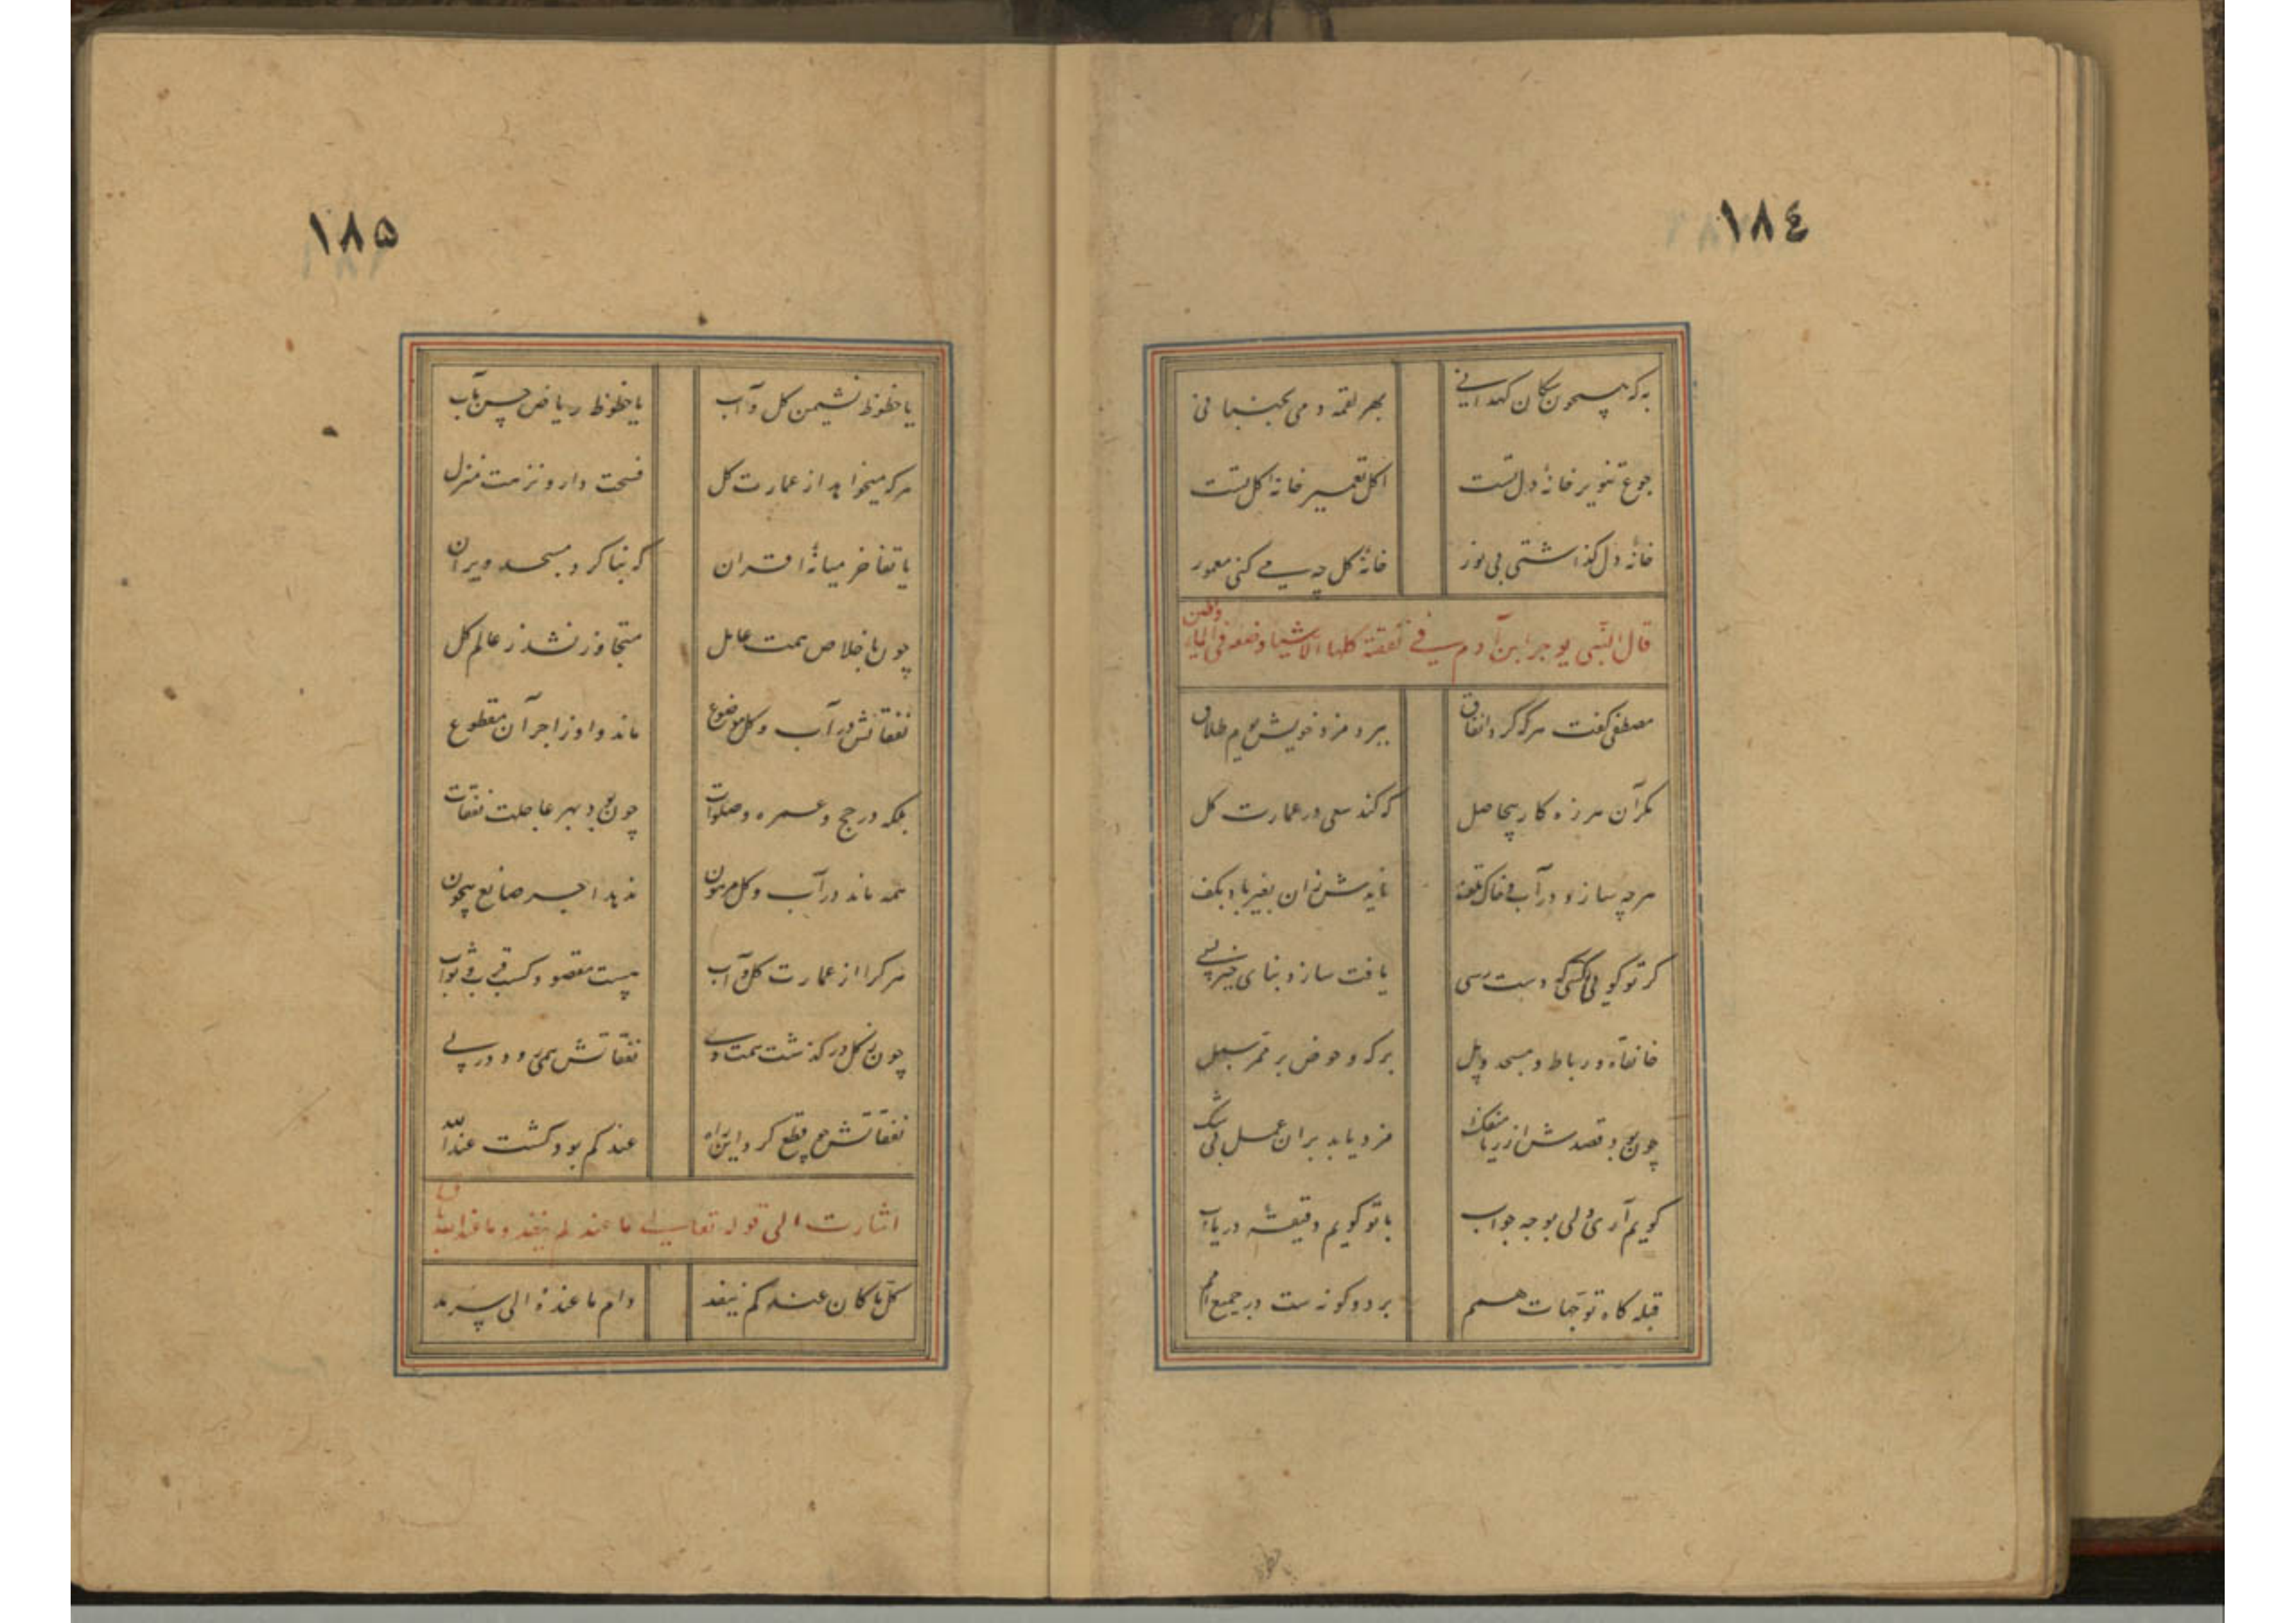 ١٨٤
به که همچون سکان کهدانی
بهر لقمه دمی بجنبانی
جوع تنویر خانهٔ دل تست
اکل تعمیر خانهٔ کل تست
خانهٔ دل گذاشتی بی نور
خانهٔ کل چه می کنی معمور
قال النبی یوجر ابن آدم فی نفقته کلها الا شیا وضعه فی الماء والطین
مصطفی کفت هرکه کرد انفاق
ببرد مزد خویش یوم طلاق
مکر آن هرزه کار بیحاصل
که کند سعی در عمارت کل
هرچه سازد در آب و خاک تلف
نایدش زان بغیر باد بکف
کر تو کویی کسی که دست رسی
یافت سازد بنای خیر بسی
خانقاه و رباط و مسجد و پل
برکه و حوض بر ممر سبل
چون بود قصدش از ریا منفک
مزد یابد بران عمل بی شک
کویم آری ولی بوجه جواب
با تو کویم دقیقهٔ دریاب
قبله کاه توجهات همم
بر دو کونه ست در جمیع امم
١٨٥
یا حظوظ نشیمن کل و آب
یا حظوظ ریاض حسن مآب
هرکه میخواهد از عمارت کل
فسحت دار و نزهت منزل
یا تفاخر میانهٔ اقران
که بنا کرد مسجد ویران
چون باخلاص همت عامل
متجاوز نشد ز عالم کل
نفقاتش در آب و کل موضوع
ماند و او ز اجر آن مقطوع
بلکه در حج و عمره و صلوات
چون بود بهر عاجلت نفقات
همه ماند در آب و کل مرهون
ندهد اجر صانع بیچون
هرکرا از عمارت کل و آب
هست مقصود کسب قرب و ثواب
چون ز کل در کذشت همت وی
نفقاتش همی رود در پی
نفقاتش چو قطع کرد این راه
عندکم بود کشت عند الله
اشارت الی قوله تعالی ما عندکم ینفد وما عند الله باق
کل ما کان عندکم ینفد
دام ما عنده الی سرمد